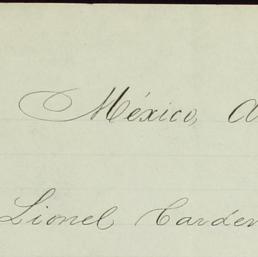 México, A
Lionel Carden